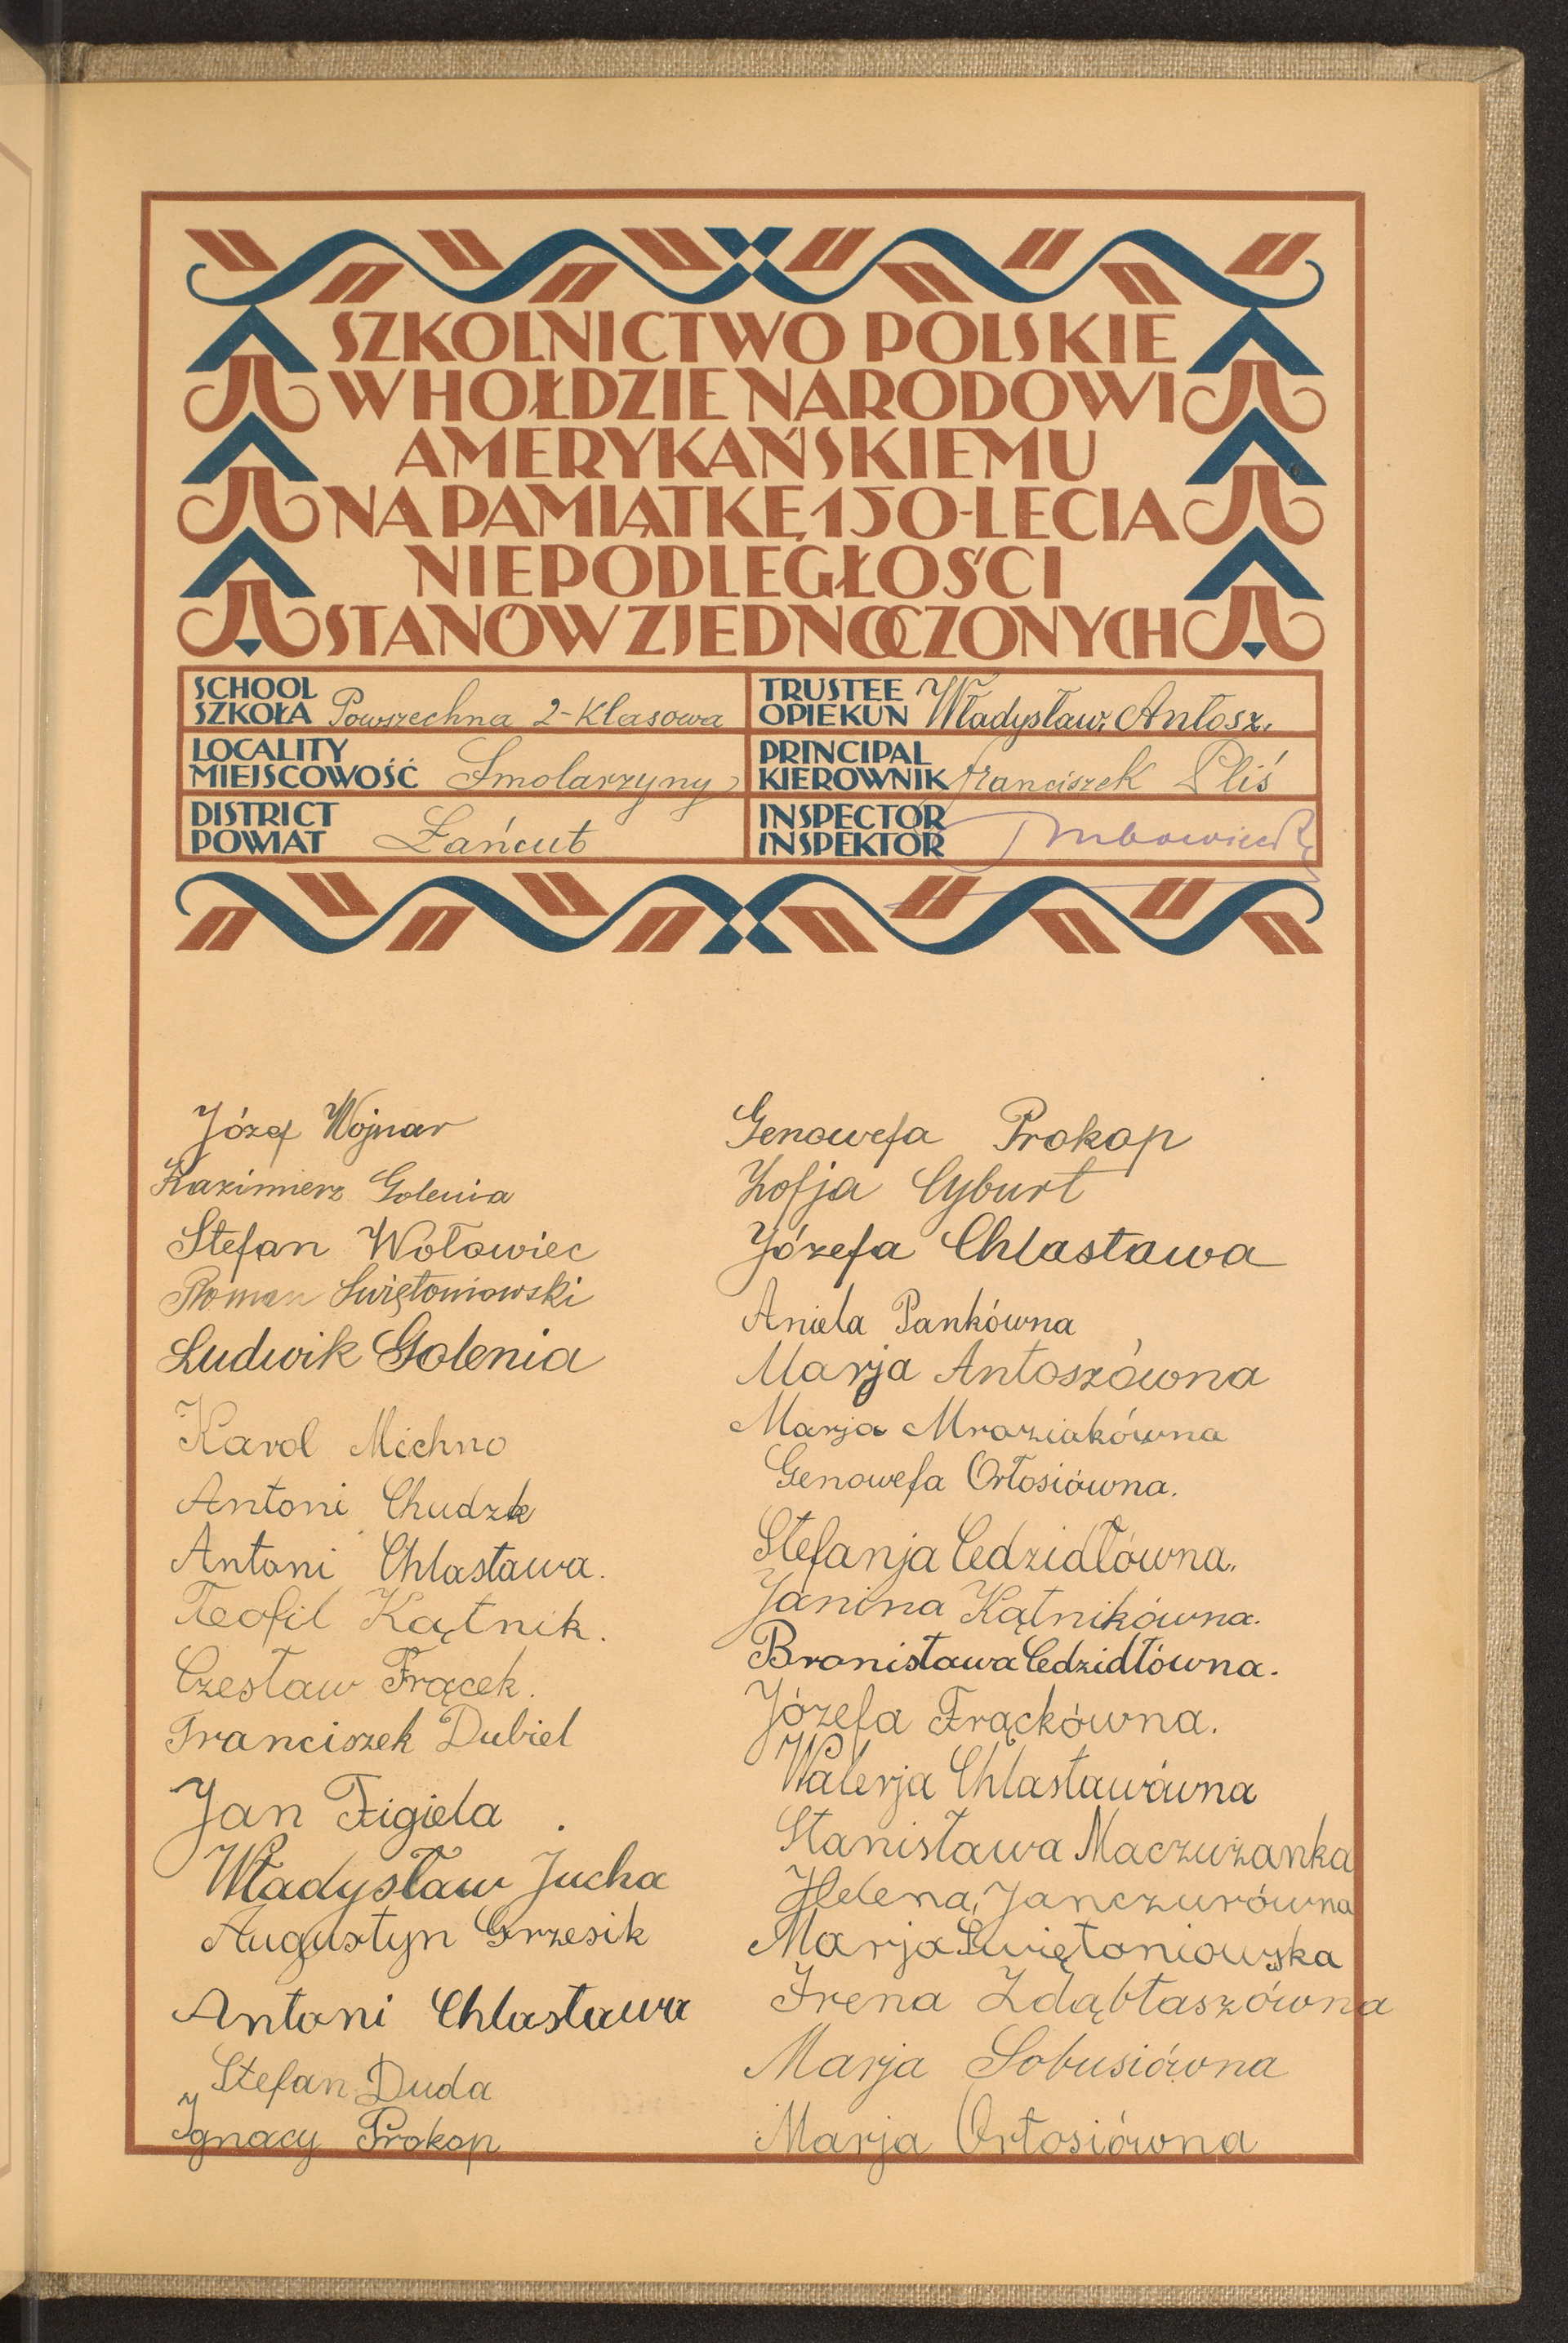 SZKOLNICTWO POLSKIE
W HOŁDZIE NARODOWI
AMERYKAŃSKIEMU
NA PAMIĄTKĘ 150-LECIA
NIEPODLEGŁOŚCI
STANÓW ZJEDNOCZONYCH
SCHOOL
SZKOŁA Powszechna 2-klasowa
TRUSTEE
OPIEKUN Władysław Antosz.
LOCALITY
MIEJSCOWOŚĆ Smolarzyny
PRINCIPAL
KIEROWNIK Franciszek Pliś
DISTRICT
POWIAT Łańcut
INSPECTOR
INSPEKTOR
Józef Wojnar
Kazimierz Golenia
Stefan Wołowiec
Roman Świętoniowski
Ludwik Golenia
Karol Michno
Antoni Chudzik
Antoni Chlastawa.
Teofil Kątnik.
Czesław Frącek.
Franciszek Dubiel
Jan Figiela
Władysław Jucha
Augustyn Grzesik
Antoni Chlastawa
Stefan Duda
Ignacy Prokop
Genowefa Prokop
Zofja Cyburt
Józefa Chlastawa
Aniela Pankówna
Marja Antoszówna
Marja Mroziakówna
Genowefa Ortosiówna.
Stefanja Cedzidłówna.
Janina Kątnikówna.
Bronisława Cedzidłówna.
Józefa Frąckówna.
Walerja Chlastawówna
Stanisława Maczużanka
Helena Janczurówna
Marja Świętoniowska
Irena Zdąbłaszówna
Marja Sobusiówna
Marja Ortosiówna